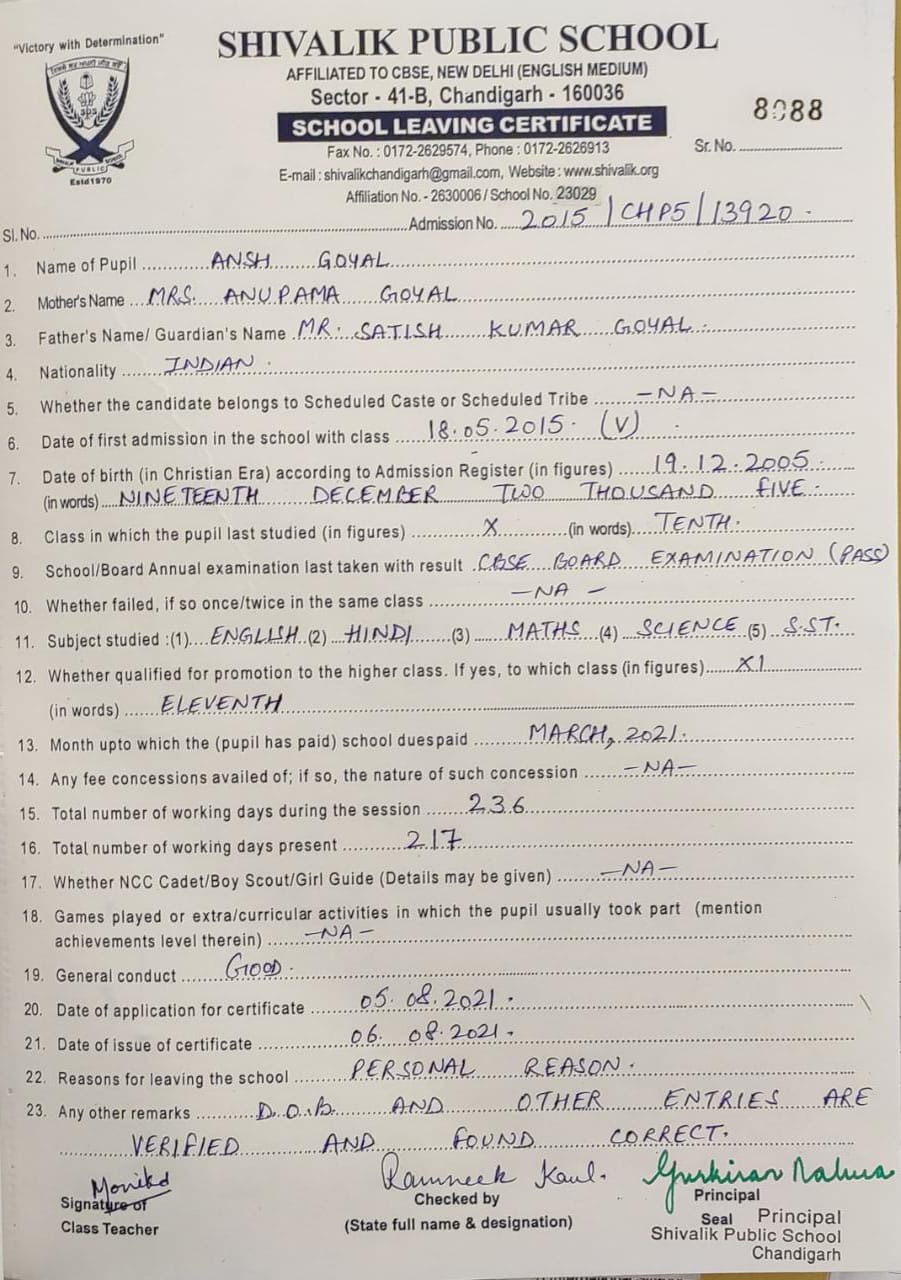 "Victory with Determination"
SHIVALIK PUBLIC SCHOOL
AFFILIATED TO CBSE, NEW DELHI (ENGLISH MEDIUM)
Sector - 41-B, Chandigarh - 160036
SCHOOL LEAVING CERTIFICATE
8088
Sr. No.
Fax No. : 0172-2629574, Phone : 0172-2626913
E-mail : shivalikchandigarh@gmail.com, Website : www.shivalik.org
Affiliation No. - 2630006 / School No. 23029
SPS
SHIVALIK PUBLIC SCHOOL
Estd 1970
Sl. No. Admission No. 2015/CHPS/13920.
1. Name of Pupil ANSH GOYAL
2. Mother's Name MRS. ANUPAMA GOYAL
3. Father's Name/ Guardian's Name MR. SATISH KUMAR GOYAL.
4. Nationality INDIAN.
5. Whether the candidate belongs to Scheduled Caste or Scheduled Tribe -NA-
6. Date of first admission in the school with class 18.05.2015. (V)
7. Date of birth (in Christian Era) according to Admission Register (in figures) 19.12.2005.
(in words) NINETEENTH DECEMBER TWO THOUSAND FIVE.
8. Class in which the pupil last studied (in figures) X (in words) TENTH.
9. School/Board Annual examination last taken with result CBSE BOARD EXAMINATION (PASS)
10. Whether failed, if so once/twice in the same class -NA-
11. Subject studied :(1) ENGLISH (2) HINDI (3) MATHS (4) SCIENCE (5) S.ST.
12. Whether qualified for promotion to the higher class. If yes, to which class (in figures) XI
(in words) ELEVENTH
13. Month upto which the (pupil has paid) school duespaid MARCH, 2021.
14. Any fee concessions availed of; if so, the nature of such concession -NA-
15. Total number of working days during the session 236
16. Total number of working days present 217
17. Whether NCC Cadet/Boy Scout/Girl Guide (Details may be given) -NA-
18. Games played or extra/curricular activities in which the pupil usually took part (mention
achievements level therein) -NA-
19. General conduct GOOD.
20. Date of application for certificate 05.08.2021.
21. Date of issue of certificate 06.08.2021.
22. Reasons for leaving the school PERSONAL REASON.
23. Any other remarks D.O.B. AND OTHER ENTRIES ARE
VERIFIED AND FOUND CORRECT.
Monika Ramneek Kaul. Gurkiran Nalwa
Signature of Checked by Principal
Class Teacher (State full name & designation) Seal Principal
Shivalik Public School
Chandigarh